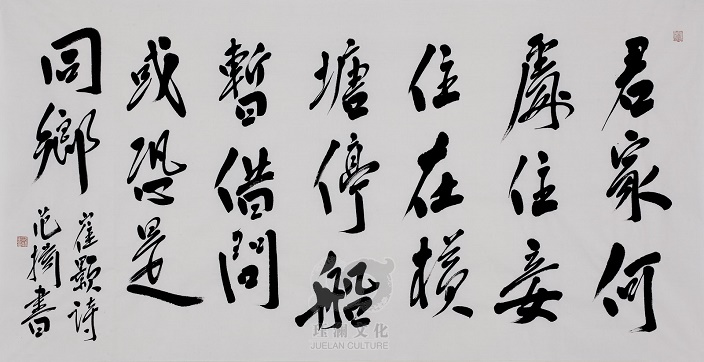 君家何
處住妾
住在横
塘停船
暫借問
或恐是
同鄉
崔顥詩
范 書
珏澜文化
JUELAN CULTURE